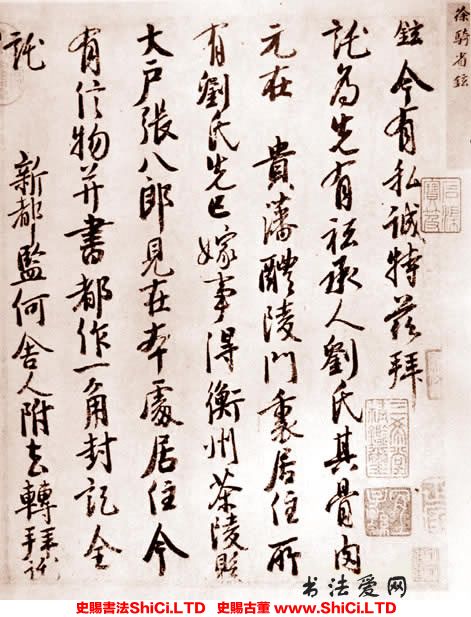 徐騎省鉉
鉉今有私誠特茲拜
託為先有祗承人劉氏其骨肉
元在 貴藩醴陵門裏居住所
有劉氏先已嫁事得衡州茶陵縣
大戶張八郎見在本處居住今
有信物并書都作一角封記全
託 新都監何舍人附去轉拜託
书法爱网
史賜書法ShiCi.LTD 史賜古董 www.ShiCi.LTD